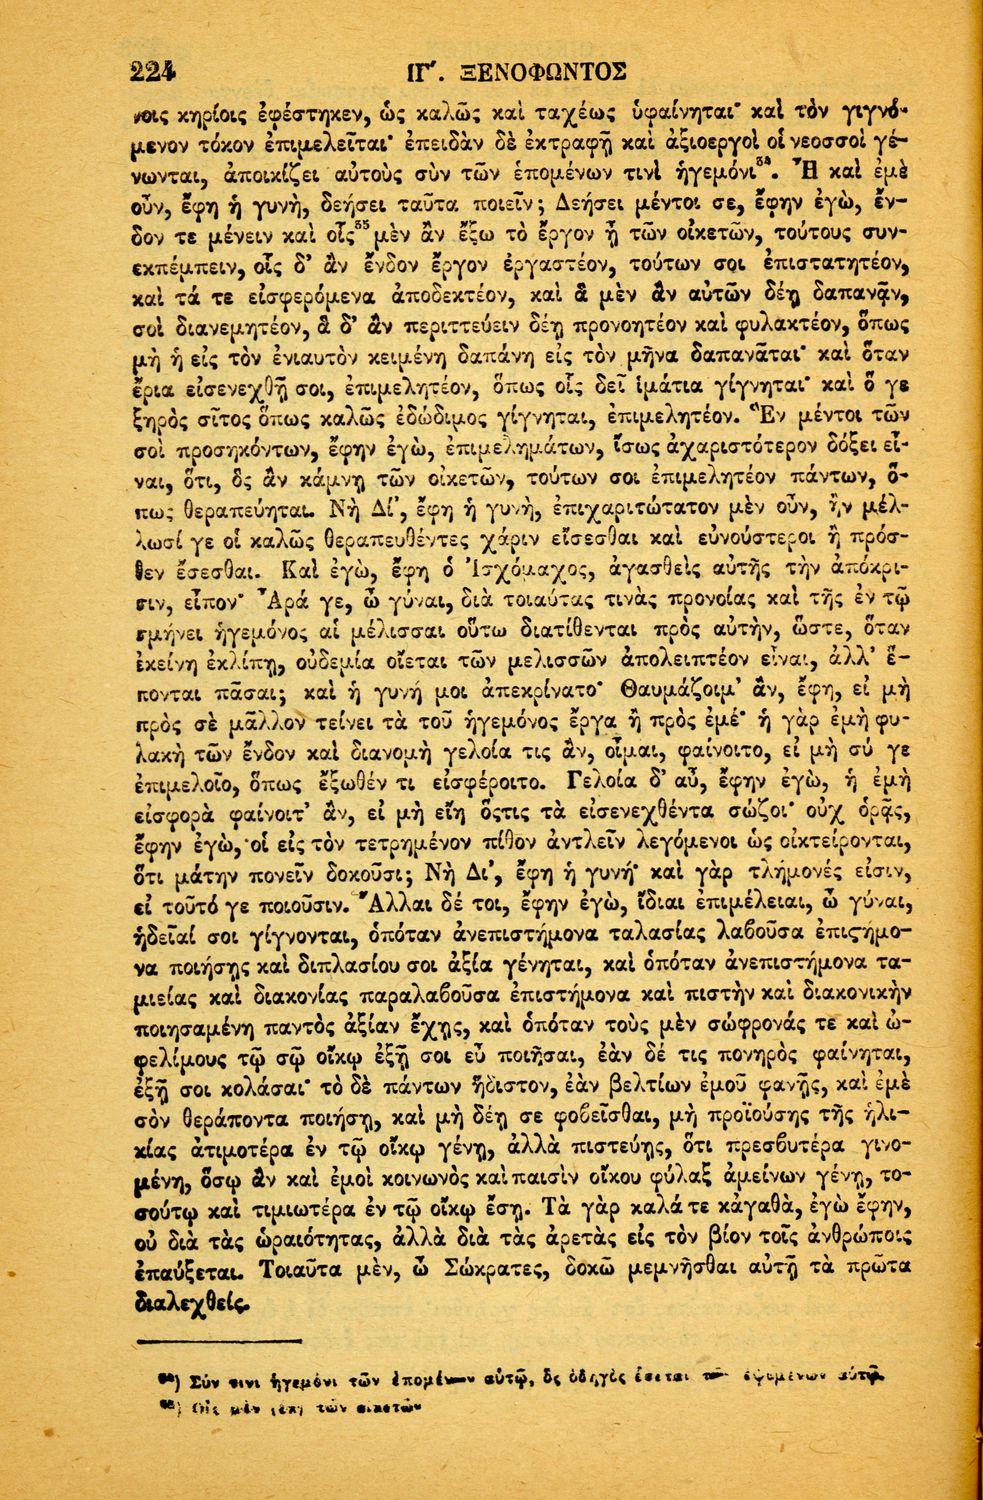 224 ΙΓʹ. ΞΕΝΟΦΩΝΤΟΣ
νοις κηρίοις ἐφέστηκεν, ὡς καλῶς καὶ ταχέως ὑφαίνηται· καὶ τὸν γιγνό-
μενον τόκον ἐπιμελεῖται· ἐπειδὰν δὲ ἐκτραφῇ καὶ ἀξιοεργοὶ οἱ νεοσσοὶ γέ-
νωνται, ἀποικίζει αὐτοὺς σὺν τῶν ἑπομένων τινὶ ἡγεμόνι³⁴. Ἦ καὶ ἐμὲ
οὖν, ἔφη ἡ γυνὴ, δεήσει ταῦτα ποιεῖν; Δεήσει μέντοι σε, ἔφην ἐγὼ, ἔν-
δον τε μένειν καὶ οἷς³⁵ μὲν ἂν ἔξω τὸ ἔργον ᾖ τῶν οἰκετῶν, τούτους συν-
εκπέμπειν, οἷς δ' ἂν ἔνδον ἔργον ἐργαστέον, τούτων σοι ἐπιστατητέον,
καὶ τά τε εἰσφερόμενα ἀποδεκτέον, καὶ ἃ μὲν ἂν αὐτῶν δέῃ δαπανᾷν,
σοὶ διανεμητέον, ἃ δ' ἂν περιττεύειν δέῃ προνοητέον καὶ φυλακτέον, ὅπως
μὴ ἡ εἰς τὸν ἐνιαυτὸν κειμένη δαπάνη εἰς τὸν μῆνα δαπανᾶται· καὶ ὅταν
ἔρια εἰσενεχθῇ σοι, ἐπιμελητέον, ὅπως οἷς δεῖ ἱμάτια γίγνηται· καὶ ὅ γε
ξηρὸς σῖτος ὅπως καλῶς ἐδώδιμος γίγνηται, ἐπιμελητέον. Ἓν μέντοι τῶν
σοὶ προσηκόντων, ἔφην ἐγὼ, ἐπιμελημάτων, ἴσως ἀχαριστότερον δόξει εἶ-
ναι, ὅτι, ὃς ἂν κάμνῃ τῶν οἰκετῶν, τούτων σοι ἐπιμελητέον πάντων, ὅ-
πως θεραπεύηται. Νὴ Δί', ἔφη ἡ γυνὴ, ἐπιχαριτώτατον μὲν οὖν, ἢν μέλ-
λωσί γε οἱ καλῶς θεραπευθέντες χάριν εἴσεσθαι καὶ εὐνούστεροι ἢ πρόσ-
θεν ἔσεσθαι. Καὶ ἐγὼ, ἔφη ὁ Ἰσχόμαχος, ἀγασθεὶς αὐτῆς τὴν ἀπόκρι-
σιν, εἶπον· Ἆρά γε, ὦ γύναι, διὰ τοιαύτας τινὰς προνοίας καὶ τῆς ἐν τῷ
σμήνει ἡγεμόνος αἱ μέλισσαι οὕτω διατίθενται πρὸς αὐτὴν, ὥστε, ὅταν
ἐκείνη ἐκλίπῃ, οὐδεμία οἴεται τῶν μελισσῶν ἀπολειπτέον εἶναι, ἀλλ' ἕ-
πονται πᾶσαι; καὶ ἡ γυνή μοι ἀπεκρίνατο· Θαυμάζοιμ' ἂν, ἔφη, εἰ μὴ
πρὸς σὲ μᾶλλον τείνει τὰ τοῦ ἡγεμόνος ἔργα ἢ πρὸς ἐμέ· ἡ γὰρ ἐμὴ φυ-
λακὴ τῶν ἔνδον καὶ διανομὴ γελοία τις ἂν, οἶμαι, φαίνοιτο, εἰ μὴ σύ γε
ἐπιμελοῖο, ὅπως ἔξωθέν τι εἰσφέροιτο. Γελοία δ' αὖ, ἔφην ἐγὼ, ἡ ἐμὴ
εἰσφορὰ φαίνοιτ' ἂν, εἰ μὴ εἴη ὅςτις τὰ εἰσενεχθέντα σώζοι· οὐχ ὁρᾷς,
ἔφην ἐγὼ, οἱ εἰς τὸν τετρημένον πίθον ἀντλεῖν λεγόμενοι ὡς οἰκτείρονται,
ὅτι μάτην πονεῖν δοκοῦσι; Νὴ Δι', ἔφη ἡ γυνή· καὶ γὰρ τλήμονές εἰσιν,
εἰ τοῦτό γε ποιοῦσιν. Ἄλλαι δέ τοι, ἔφην ἐγὼ, ἴδιαι ἐπιμέλειαι, ὦ γύναι,
ἡδεῖαί σοι γίγνονται, ὁπόταν ἀνεπιστήμονα ταλασίας λαβοῦσα ἐπιστήμο-
να ποιήσῃς καὶ διπλασίου σοι ἀξία γένηται, καὶ ὁπόταν ἀνεπιστήμονα τα-
μιείας καὶ διακονίας παραλαβοῦσα ἐπιστήμονα καὶ πιστὴν καὶ διακονικὴν
ποιησαμένη παντὸς ἀξίαν ἔχῃς, καὶ ὁπόταν τοὺς μὲν σώφρονάς τε καὶ ὠ-
φελίμους τῷ σῷ οἴκῳ ἐξῇ σοι εὖ ποιῆσαι, ἐὰν δέ τις πονηρὸς φαίνηται,
ἐξῇ σοι κολάσαι· τὸ δὲ πάντων ἥδιστον, ἐὰν βελτίων ἐμοῦ φανῇς, καὶ ἐμὲ
σὸν θεράποντα ποιήσῃ, καὶ μὴ δέῃ σε φοβεῖσθαι, μὴ προϊούσης τῆς ἡλι-
κίας ἀτιμοτέρα ἐν τῷ οἴκῳ γένῃ, ἀλλὰ πιστεύῃς, ὅτι πρεσβυτέρα γινο-
μένη, ὅσῳ ἂν καὶ ἐμοὶ κοινωνὸς καὶ παισὶν οἴκου φύλαξ ἀμείνων γένῃ, το-
σούτῳ καὶ τιμιωτέρα ἐν τῷ οἴκῳ ἔσῃ. Τὰ γὰρ καλά τε κἀγαθὰ, ἐγὼ ἔφην,
οὐ διὰ τὰς ὡραιότητας, ἀλλὰ διὰ τὰς ἀρετὰς εἰς τὸν βίον τοῖς ἀνθρώποις
ἐπαύξεται. Τοιαῦτα μὲν, ὦ Σώκρατες, δοκῶ μεμνῆσθαι αὐτῇ τὰ πρῶτα
διαλεχθείς.
³⁴) Σύν τινι ἡγεμόνι τῶν ἑπομένων αὐτῷ, ὃς ὁδηγὸς ἔσεται τῶν ἑψομένων αὐτῷ.
³⁵) Οἷς μὲν τῶν οἰκετῶν